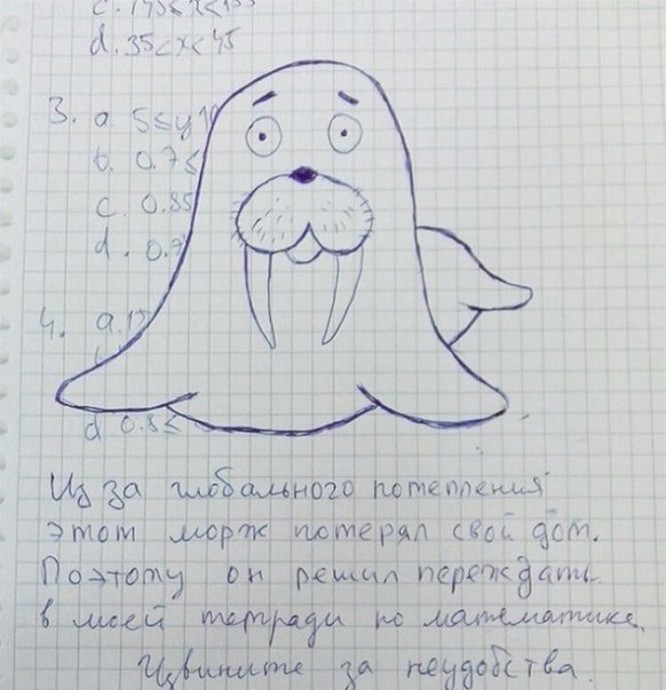 c. 145≤x<155
d. 35<x<45
3. a 5≤y
b. 0.7≤
c. 0.85
d. 0.7
4. a.15
d 0.8≤
Из за глобального потепления
этот морж потерял свой дом.
Поэтому он решил переждать
в моей тетради по математике.
Извините за неудобства.